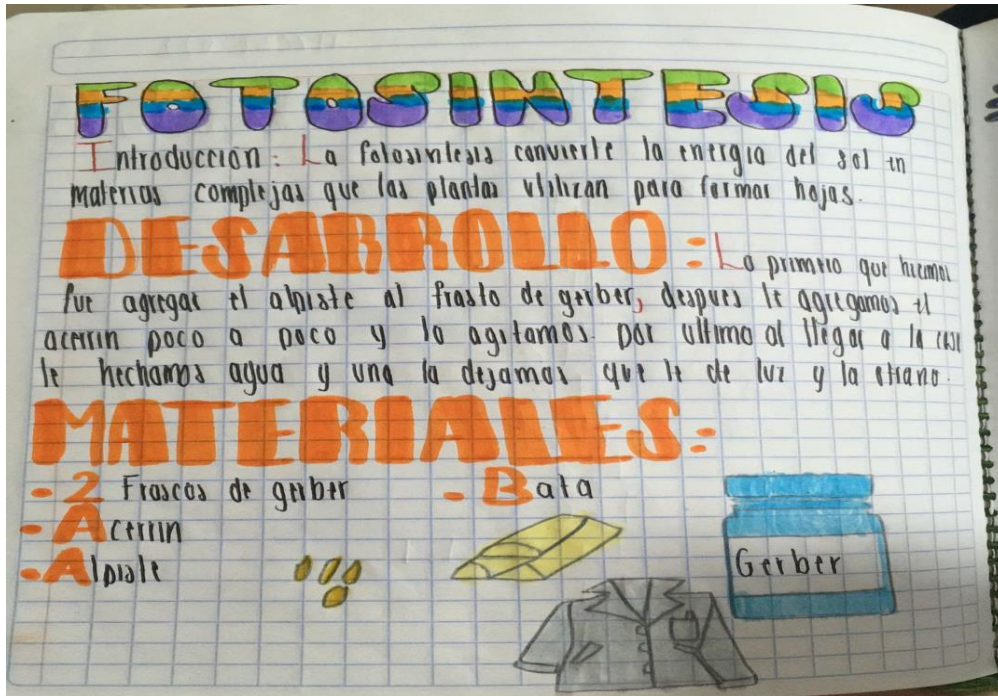 FOTOSINTESIS
Introduccion: La fotosintesis convierte la energia del sol en
materias complejas que las plantas utilizan para formar hojas.
DESARROLLO: Lo primero que hicimos
fue agregar el alpiste al frasto de gerber, despues le agregamos el
acerrin poco a poco y lo agitamos. por ultimo al llegar a la casa
le hechamos agua y una la dejamos que le de luz y la otra no.
MATERIALES:
- 2 Frascos de gerber
- Bata
- Acerrin
- Alpiste
Gerber